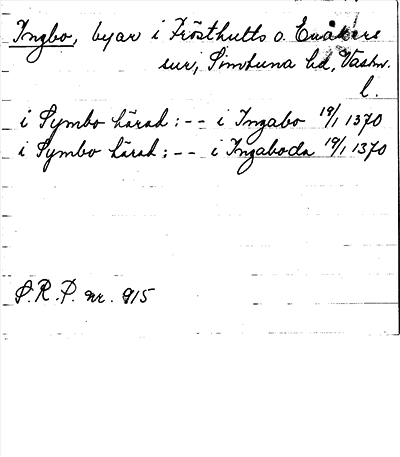 Ingbo, byar i Frösthults o. Enåkers
sur, Simtuna hd, Vastm.
l.
i Symbo härad: -- i Ingabo 19/1 1370
i Symbo härad: -- i Ingaboda 19/1 1370
S.R.P. nr. 915